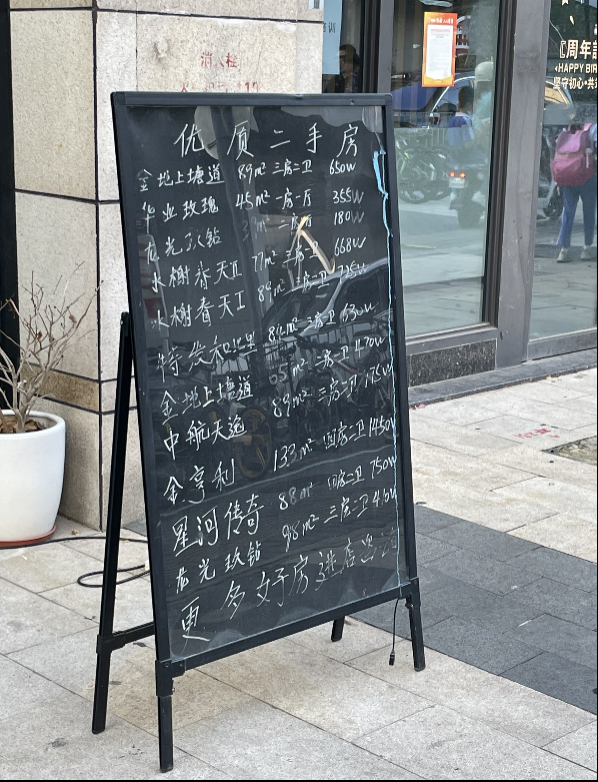 消火栓
优质二手房
金地上塘道 89m² 三房二卫 650W
华业玫瑰 45m² 一房一厅 355W
龙光玖钻 房一厅 180W
水榭春天II 77m² 三房 668W
水榭春天I 89m² 三房二卫 725W
特发和平里 三房二卫 630W
金地上塘道 65m² 二房一卫 470W
中航天逸 89m² 三房二卫
金亨利 133m² 四房二卫 1450W
星河传奇 88m² 四房二卫 750W
龙光玖钻 98m² 三房二卫
更多好房进店
周年
HAPPY BIR
坚守初心·共